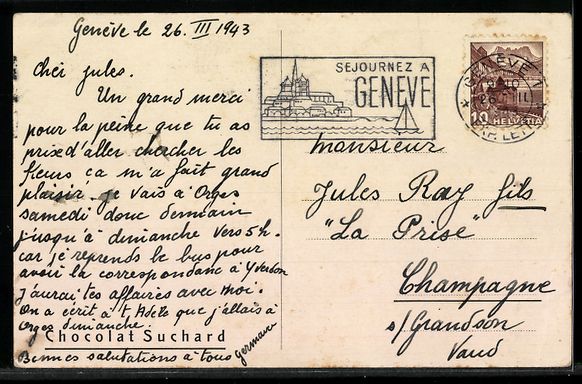 Genève le 26. III 1943
Chei Jules.
Un grand merci
pour la peine que tu as
prise d'aller chercher les
fleurs ça m'a fait grand
plaisir. je vais à Orges
samedi donc demain
jusqu'à dimanche vers 5 h.
car je reprends le bus pour
avoir la correspondance à Yverdon
J'aurai tes affaires avec moi.
On a écrit à t. Adèle que j'allais à
Orges dimanche.
Chocolat Suchard
Bonnes salutations à tous
germain
SEJOURNEZ A
GENEVE
GENEVE 1
26 III
10 HELVETIA
Monsieur
Jules Ray fils
"La Prise"
Champagne
s/Grandson
Vaud